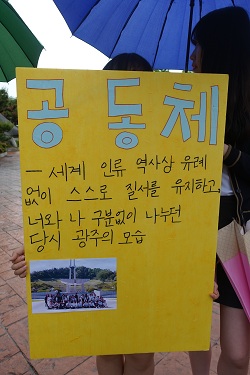 공동체
— 세계 인류 역사상 유례
없이 스스로 질서를 유지하고,
너와 나 구분없이 나누던
당시 광주의 모습